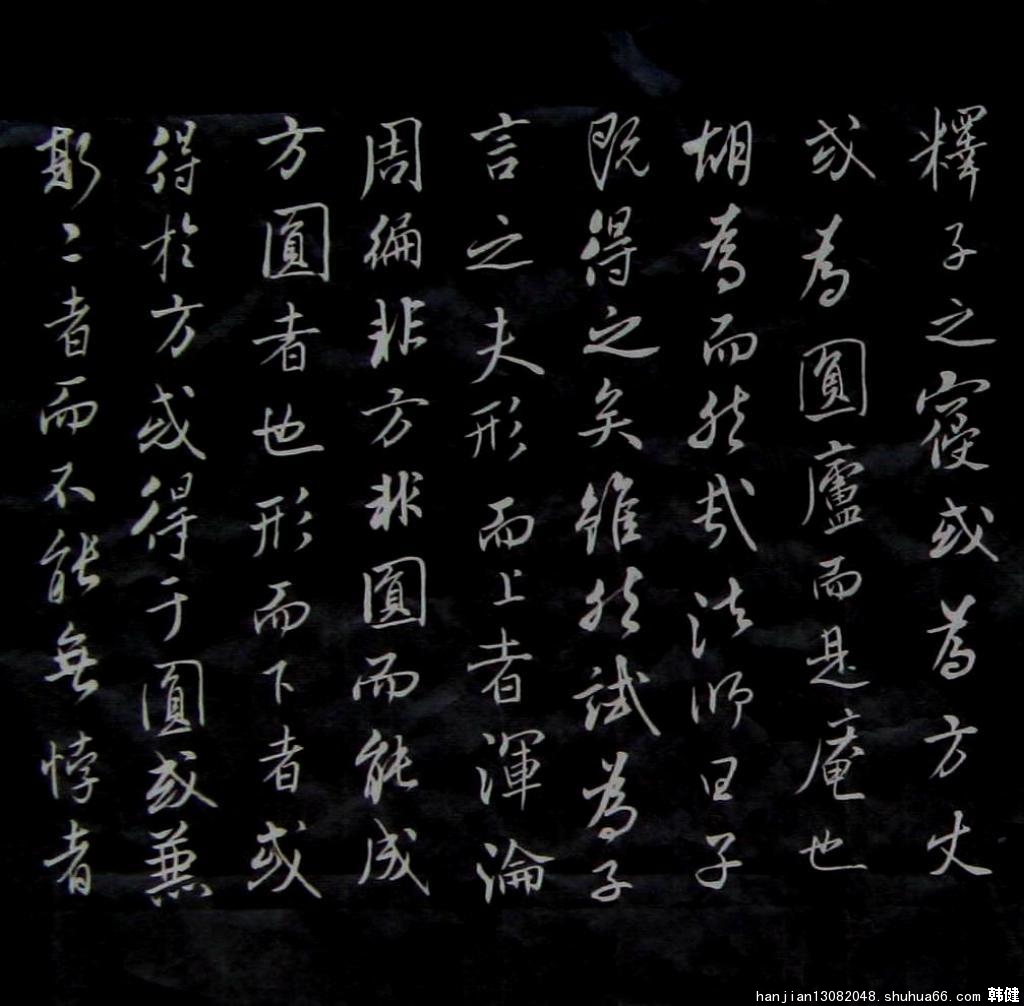 釋子之寢或為方丈
或為圓廬而是庵也
胡為而然哉法師曰子
既得之矣雖然試為子
言之夫形而上者渾淪
周徧非方非圓而能成
方圓者也形而下者或
得於方或得于圓或兼
斯二者而不能無悖者
hanjian13082048.shuhua66.com 韩健